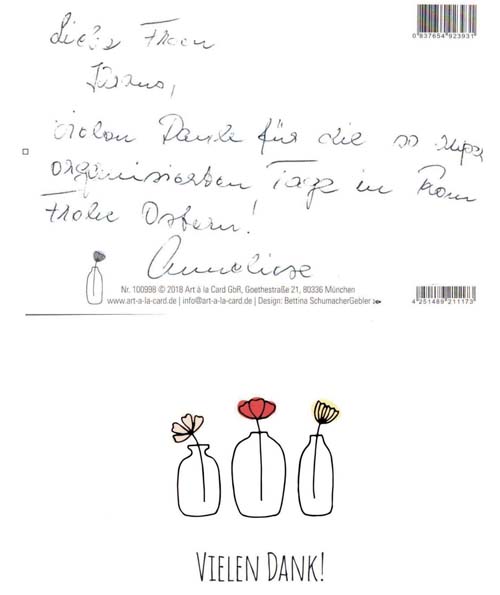 0 837654 923931
Liebe Frau
vielen Dank für die so super
organisierten Tage in Rom
Frohe Ostern!
Anneliese
Nr. 100998 © 2018 Art à la Card GbR, Goethestraße 21, 80336 München
www.art-a-la-card.de | info@art-a-la-card.de | Design: Bettina SchumacherGebler
4 251489 211173
VIELEN DANK!